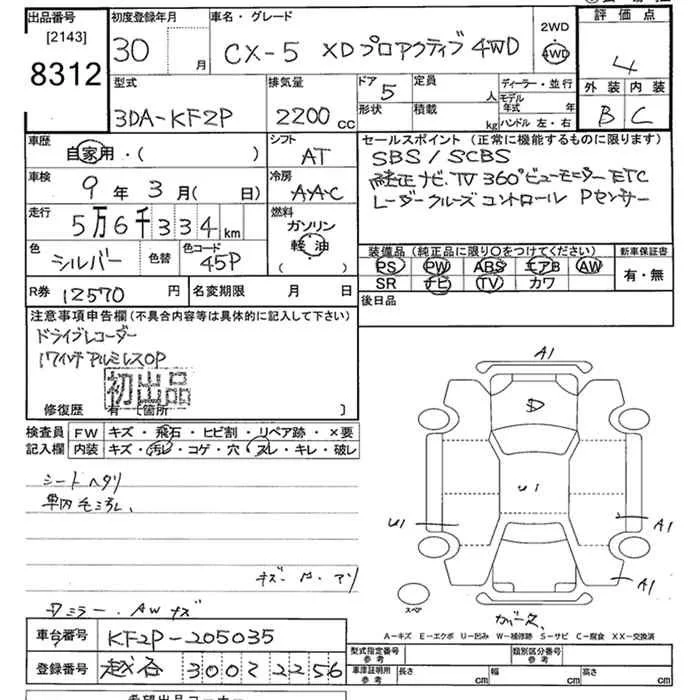 出品番号
[2143]
8312
初度登録年月
30 月
車名・グレード
CX-5 XDプロアクティブ 4WD
2WD
4WD
評価点
4
型式
3DA-KF2P
排気量
2200 cc
ドア
5
形状
定員
人
積載
kg
ディーラー・並行
モデル年式 年
ハンドル 左・右
外装 内装
B C
車歴
自家用・( )
シフト
AT
セールスポイント(正常に機能するものに限ります)
SBS/SCBS
純正ナビ.TV 360°ビューモニター ETC
レーダークルーズコントロール Pセンサー
車検
9年 3月( 日)
冷房
AAC
走行
5万6千334km
燃料
ガソリン
軽油
( )
色
シルバー
色替
色コード
45P
装備品(純正品に限り〇をつけてください)
PS PW ABS エアB AW
SR ナビ TV カワ
新車保証書
有・無
R券 12570 円
名変期限 月 日
後日品
注意事項申告欄(不具合内容等は具体的に記入して下さい)
ドライブレコーダー
17インチアルミレスOP
初出品
修復歴 有 [箇所 ]
検査員
記入欄
FW キズ・飛石・ヒビ割・リペア跡・×要
内装 キズ・汚レ・コゲ・穴・スレ・キレ・破レ
シートヘタリ
A1
D
U1
U1
A1
A1
スペア
A-キズ E-エクボ U-凹み W-補修跡 S-サビ C-腐食 XX-交換済
車台番号 KF2P-205035
登録番号 越谷 300 2256
型式指定番号
参考
類別区分番号
参考
車庫証明用
参考
長さ cm
幅 cm
高さ cm
希望出品コーナー